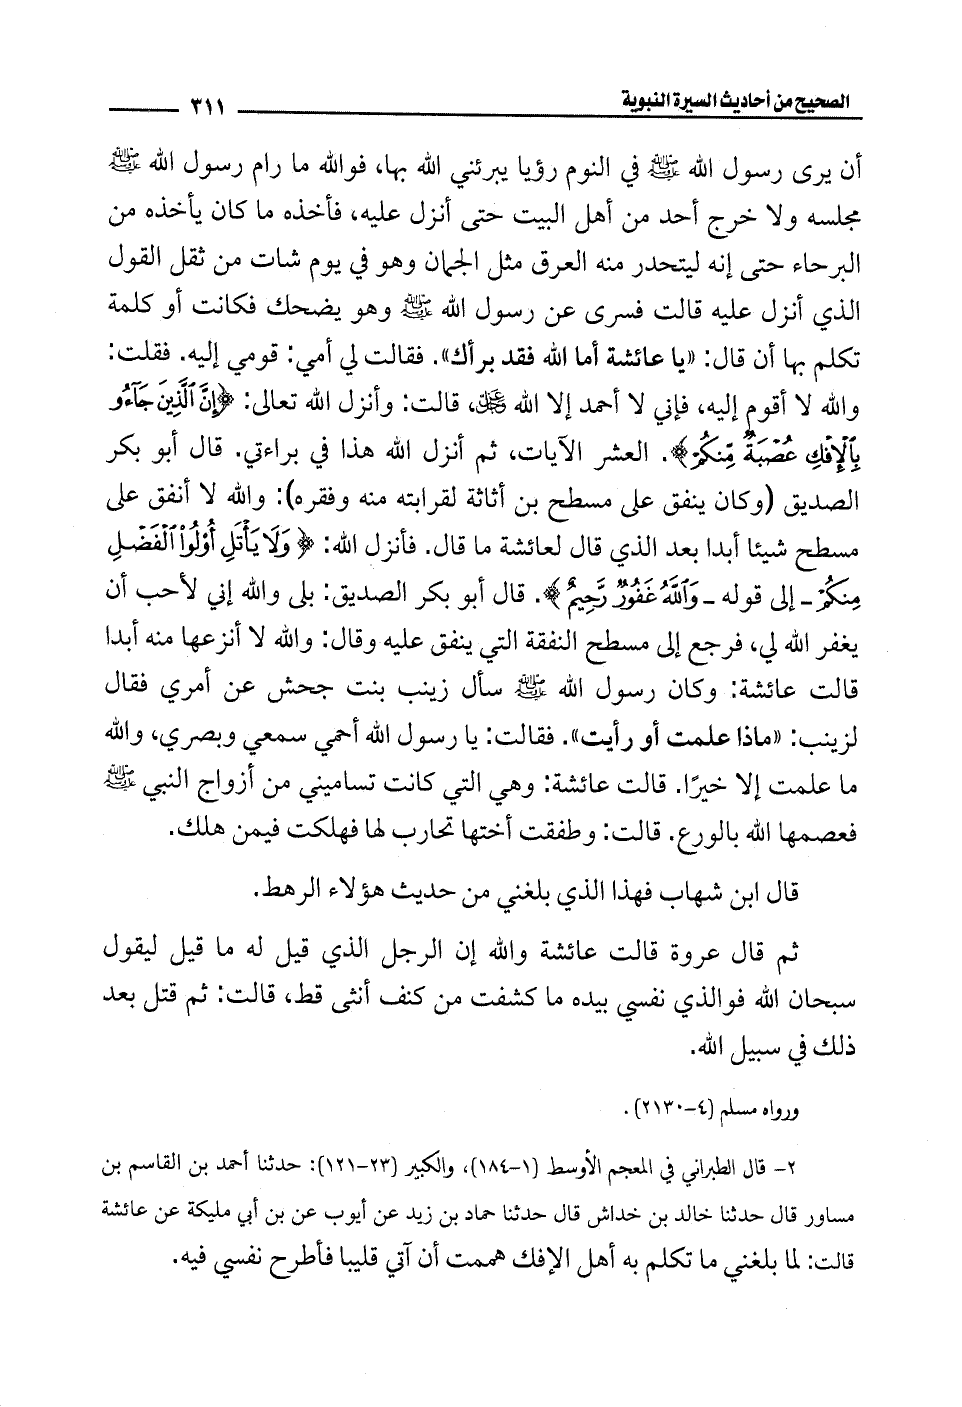 الصحيح من أحاديث السيرة النبوية ٣١١
أن يرى رسول الله ﷺ في النوم رؤيا يبرئني الله بها، فوالله ما رام رسول الله ﷺ
مجلسه ولا خرج أحد من أهل البيت حتى أنزل عليه، فأخذه ما كان يأخذه من
البرحاء حتى إنه ليتحدر منه العرق مثل الجمان وهو في يوم شات من ثقل القول
الذي أنزل عليه قالت فسرى عن رسول الله ﷺ وهو يضحك فكانت أو كلمة
تكلم بها أن قال: «يا عائشة أما الله فقد برأك». فقالت لي أمي: قومي إليه. فقلت:
والله لا أقوم إليه، فإني لا أحمد إلا الله ﷻ، قالت: وأنزل الله تعالى: ﴿إِنَّ ٱلَّذِينَ جَآءُو
بِٱلْإِفْكِ عُصْبَةٌ مِّنكُمْ﴾. العشر الآيات، ثم أنزل الله هذا في براءتي. قال أبو بكر
الصديق (وكان ينفق على مسطح بن أثاثة لقرابته منه وفقره): والله لا أنفق على
مسطح شيئا أبدا بعد الذي قال لعائشة ما قال. فأنزل الله: ﴿وَلَا يَأْتَلِ أُوْلُواْ ٱلْفَضْلِ
مِنكُمْ ـ إلى قوله ـ وَٱللَّهُ غَفُورٌ رَّحِيمٌ﴾. قال أبو بكر الصديق: بلى والله إني لأحب أن
يغفر الله لي، فرجع إلى مسطح النفقة التي ينفق عليه وقال: والله لا أنزعها منه أبدا
قالت عائشة: وكان رسول الله ﷺ سأل زينب بنت جحش عن أمري فقال
لزينب: «ماذا علمت أو رأيت». فقالت: يا رسول الله أحمي سمعي وبصري، والله
ما علمت إلا خيرًا. قالت عائشة: وهي التي كانت تساميني من أزواج النبي ﷺ
فعصمها الله بالورع. قالت: وطفقت أختها تحارب لها فهلكت فيمن هلك.
قال ابن شهاب فهذا الذي بلغني من حديث هؤلاء الرهط.
ثم قال عروة قالت عائشة والله إن الرجل الذي قيل له ما قيل ليقول
سبحان الله فوالذي نفسي بيده ما كشفت من كنف أنثى قط، قالت: ثم قتل بعد
ذلك في سبيل الله.
ورواه مسلم (٤-٢١٣٠).
٢- قال الطبراني في المعجم الأوسط (١-١٨٤)، والكبير (٢٣-١٢١): حدثنا أحمد بن القاسم بن
مساور قال حدثنا خالد بن خداش قال حدثنا حماد بن زيد عن أيوب عن بن أبي مليكة عن عائشة
قالت: لما بلغني ما تكلم به أهل الإفك هممت أن آتي قليبا فأطرح نفسي فيه.